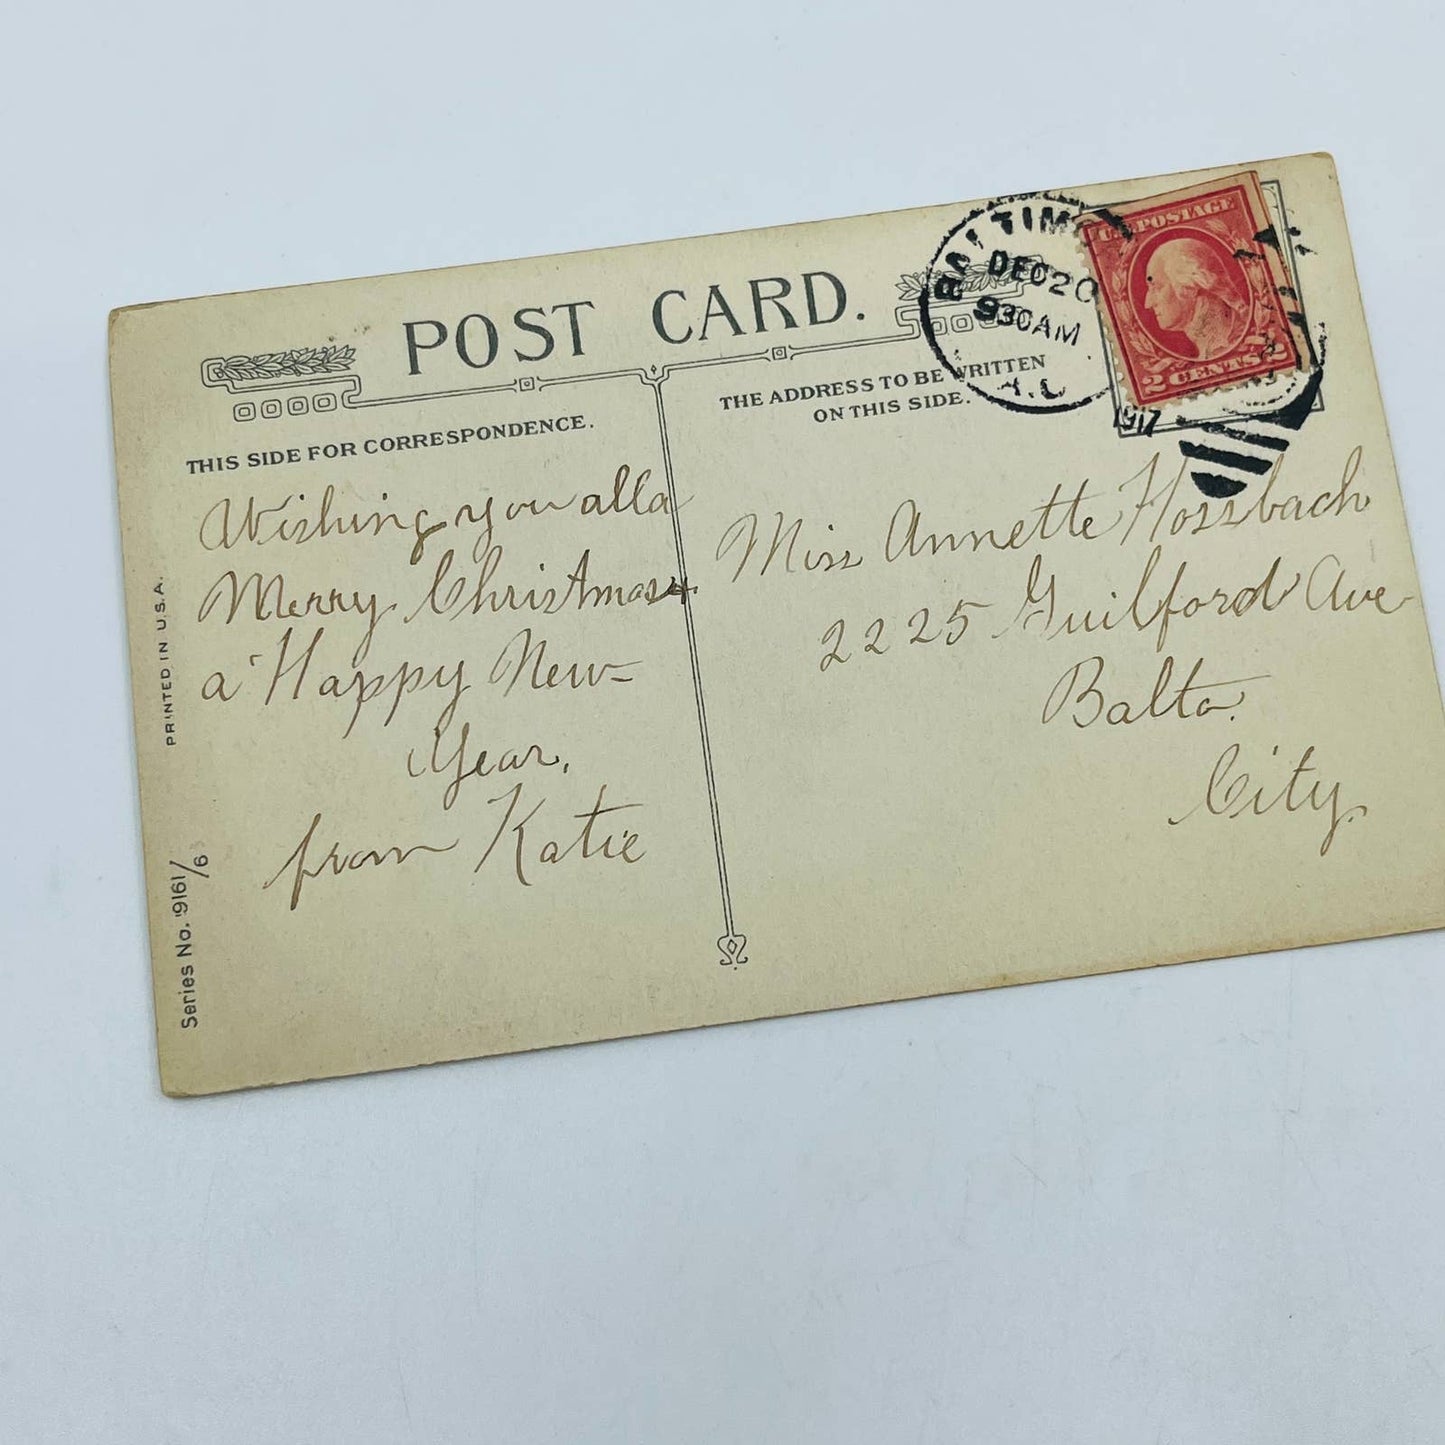 POST CARD.
THIS SIDE FOR CORRESPONDENCE.
THE ADDRESS TO BE WRITTEN
ON THIS SIDE.
BALTIMO
DEC 20
930AM
1917
U.S. POSTAGE
2 CENTS 2
Wishing you all a
Merry Christmas +
a Happy New-
Year,
from Katie
Miss Annette Hossbach
2225 Guilford Ave
Balto.
City.
PRINTED IN U.S.A.
Series No. 9161/6